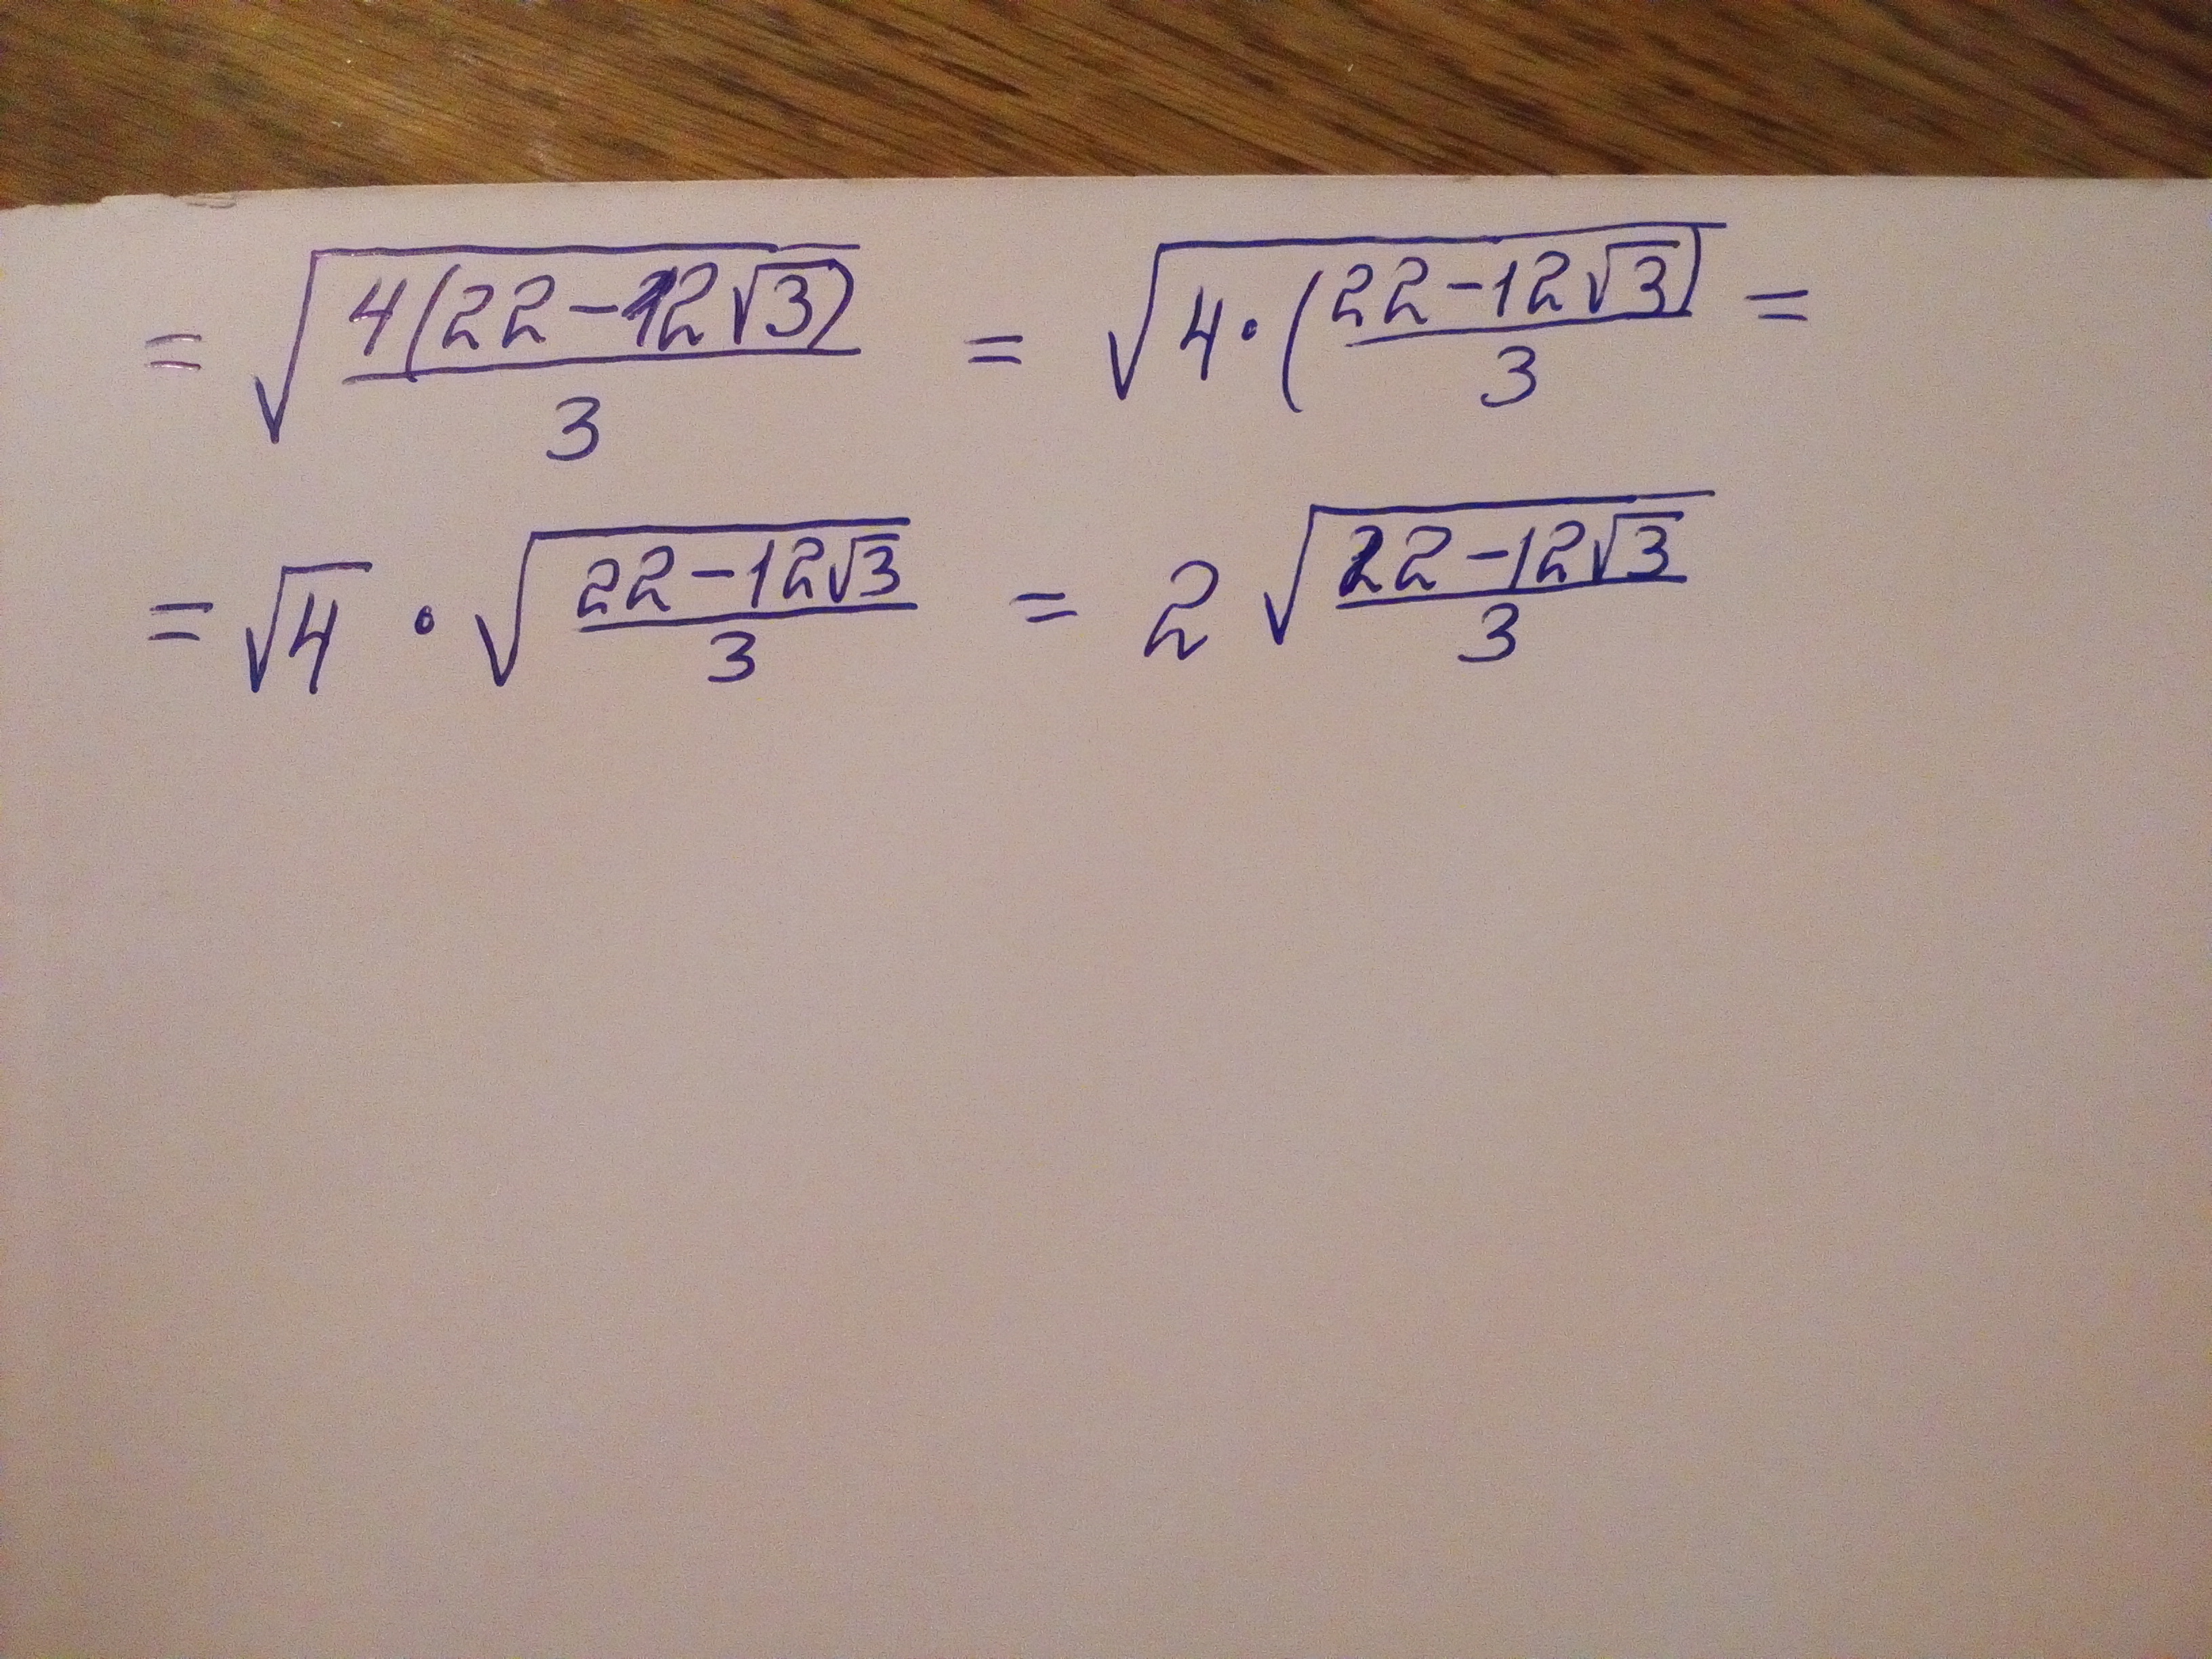 = √(4(22-12√3)/3) = √(4·(22-12√3)/3) =
= √4 · √(22-12√3/3) = 2 √(22-12√3/3)